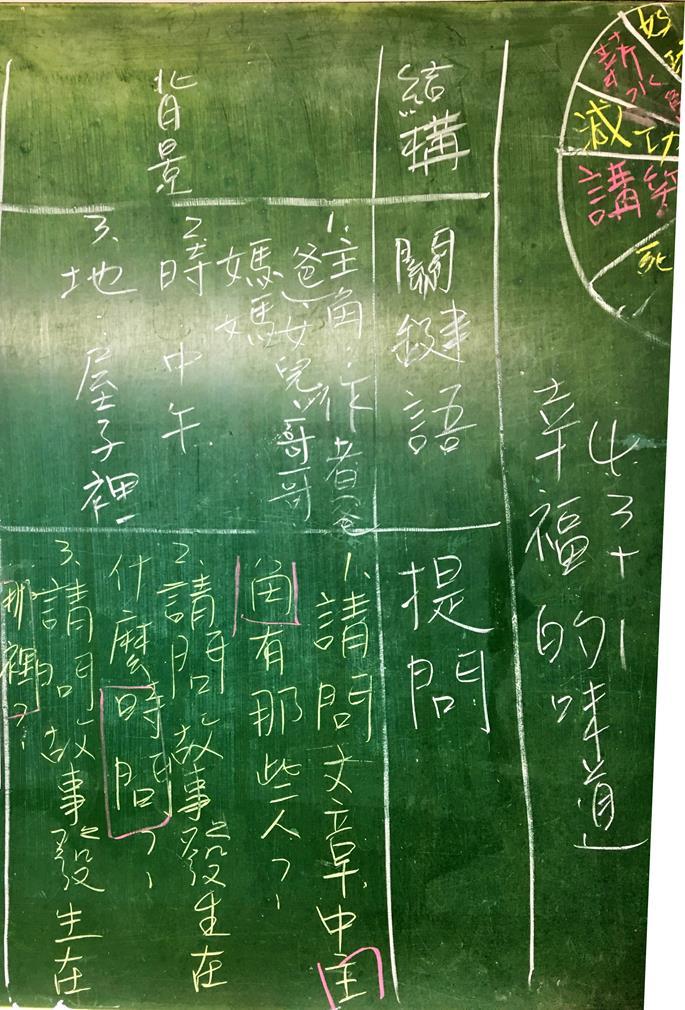 薪水
減功
講
死
4.3+1
幸福的味道
結構
關鍵語
提問
背景
1.主角:作者爸
爸、女兒、哥哥
媽媽
2.時:中午
3.地:屋子裡
1.請問文章中主
角有那些人?
2.請問故事發生在
什麼時間?
3.請問故事發生在
那裡?